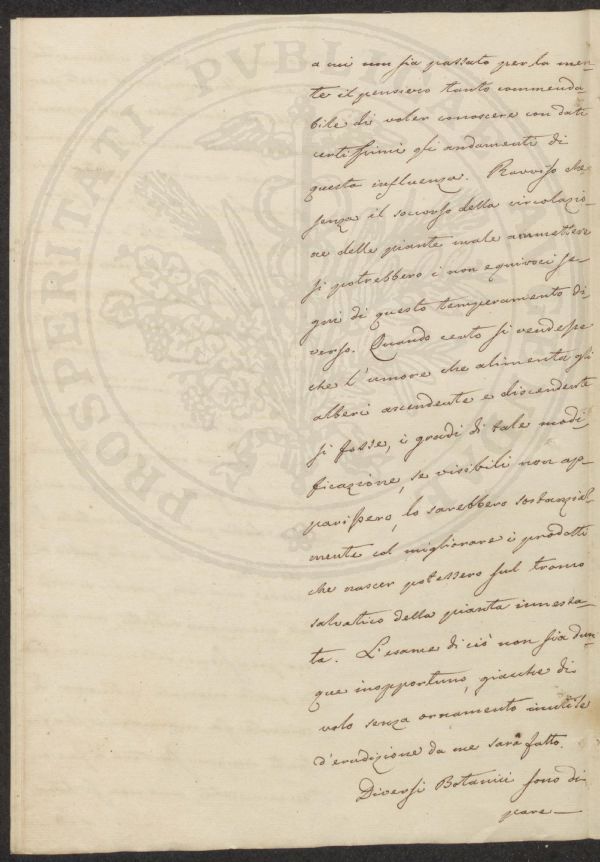 a cui non sia passato per la men-
te il pensiero tanto commenda-
bile di voler conoscere con dati
certissimi gli andamenti di
questa influenza. Ravviso che
senza il soccorso della circolazio-
ne delle piante male ammettere
si potrebbero i non equivoci se-
gni di questo temperamento di-
verso. Quando certo si rendesse
che l'umore che alimenta gli
alberi ascendente e discendente
si fosse, i gradi di tale modi-
ficazione, se visibili non ap-
parissero, lo sarebbero sostanzial-
mente col migliorare i prodotti
che nascer potessero sul tronco
salvatico della pianta innesta-
ta. L'esame di ciò non sia dun-
que inopportuno, giacche di
volo senza ornamento inutile
d'erudizione da me sarà fatto.
Diversi Botanici sono di
pare-
PROSPERITATI PVBLICAE